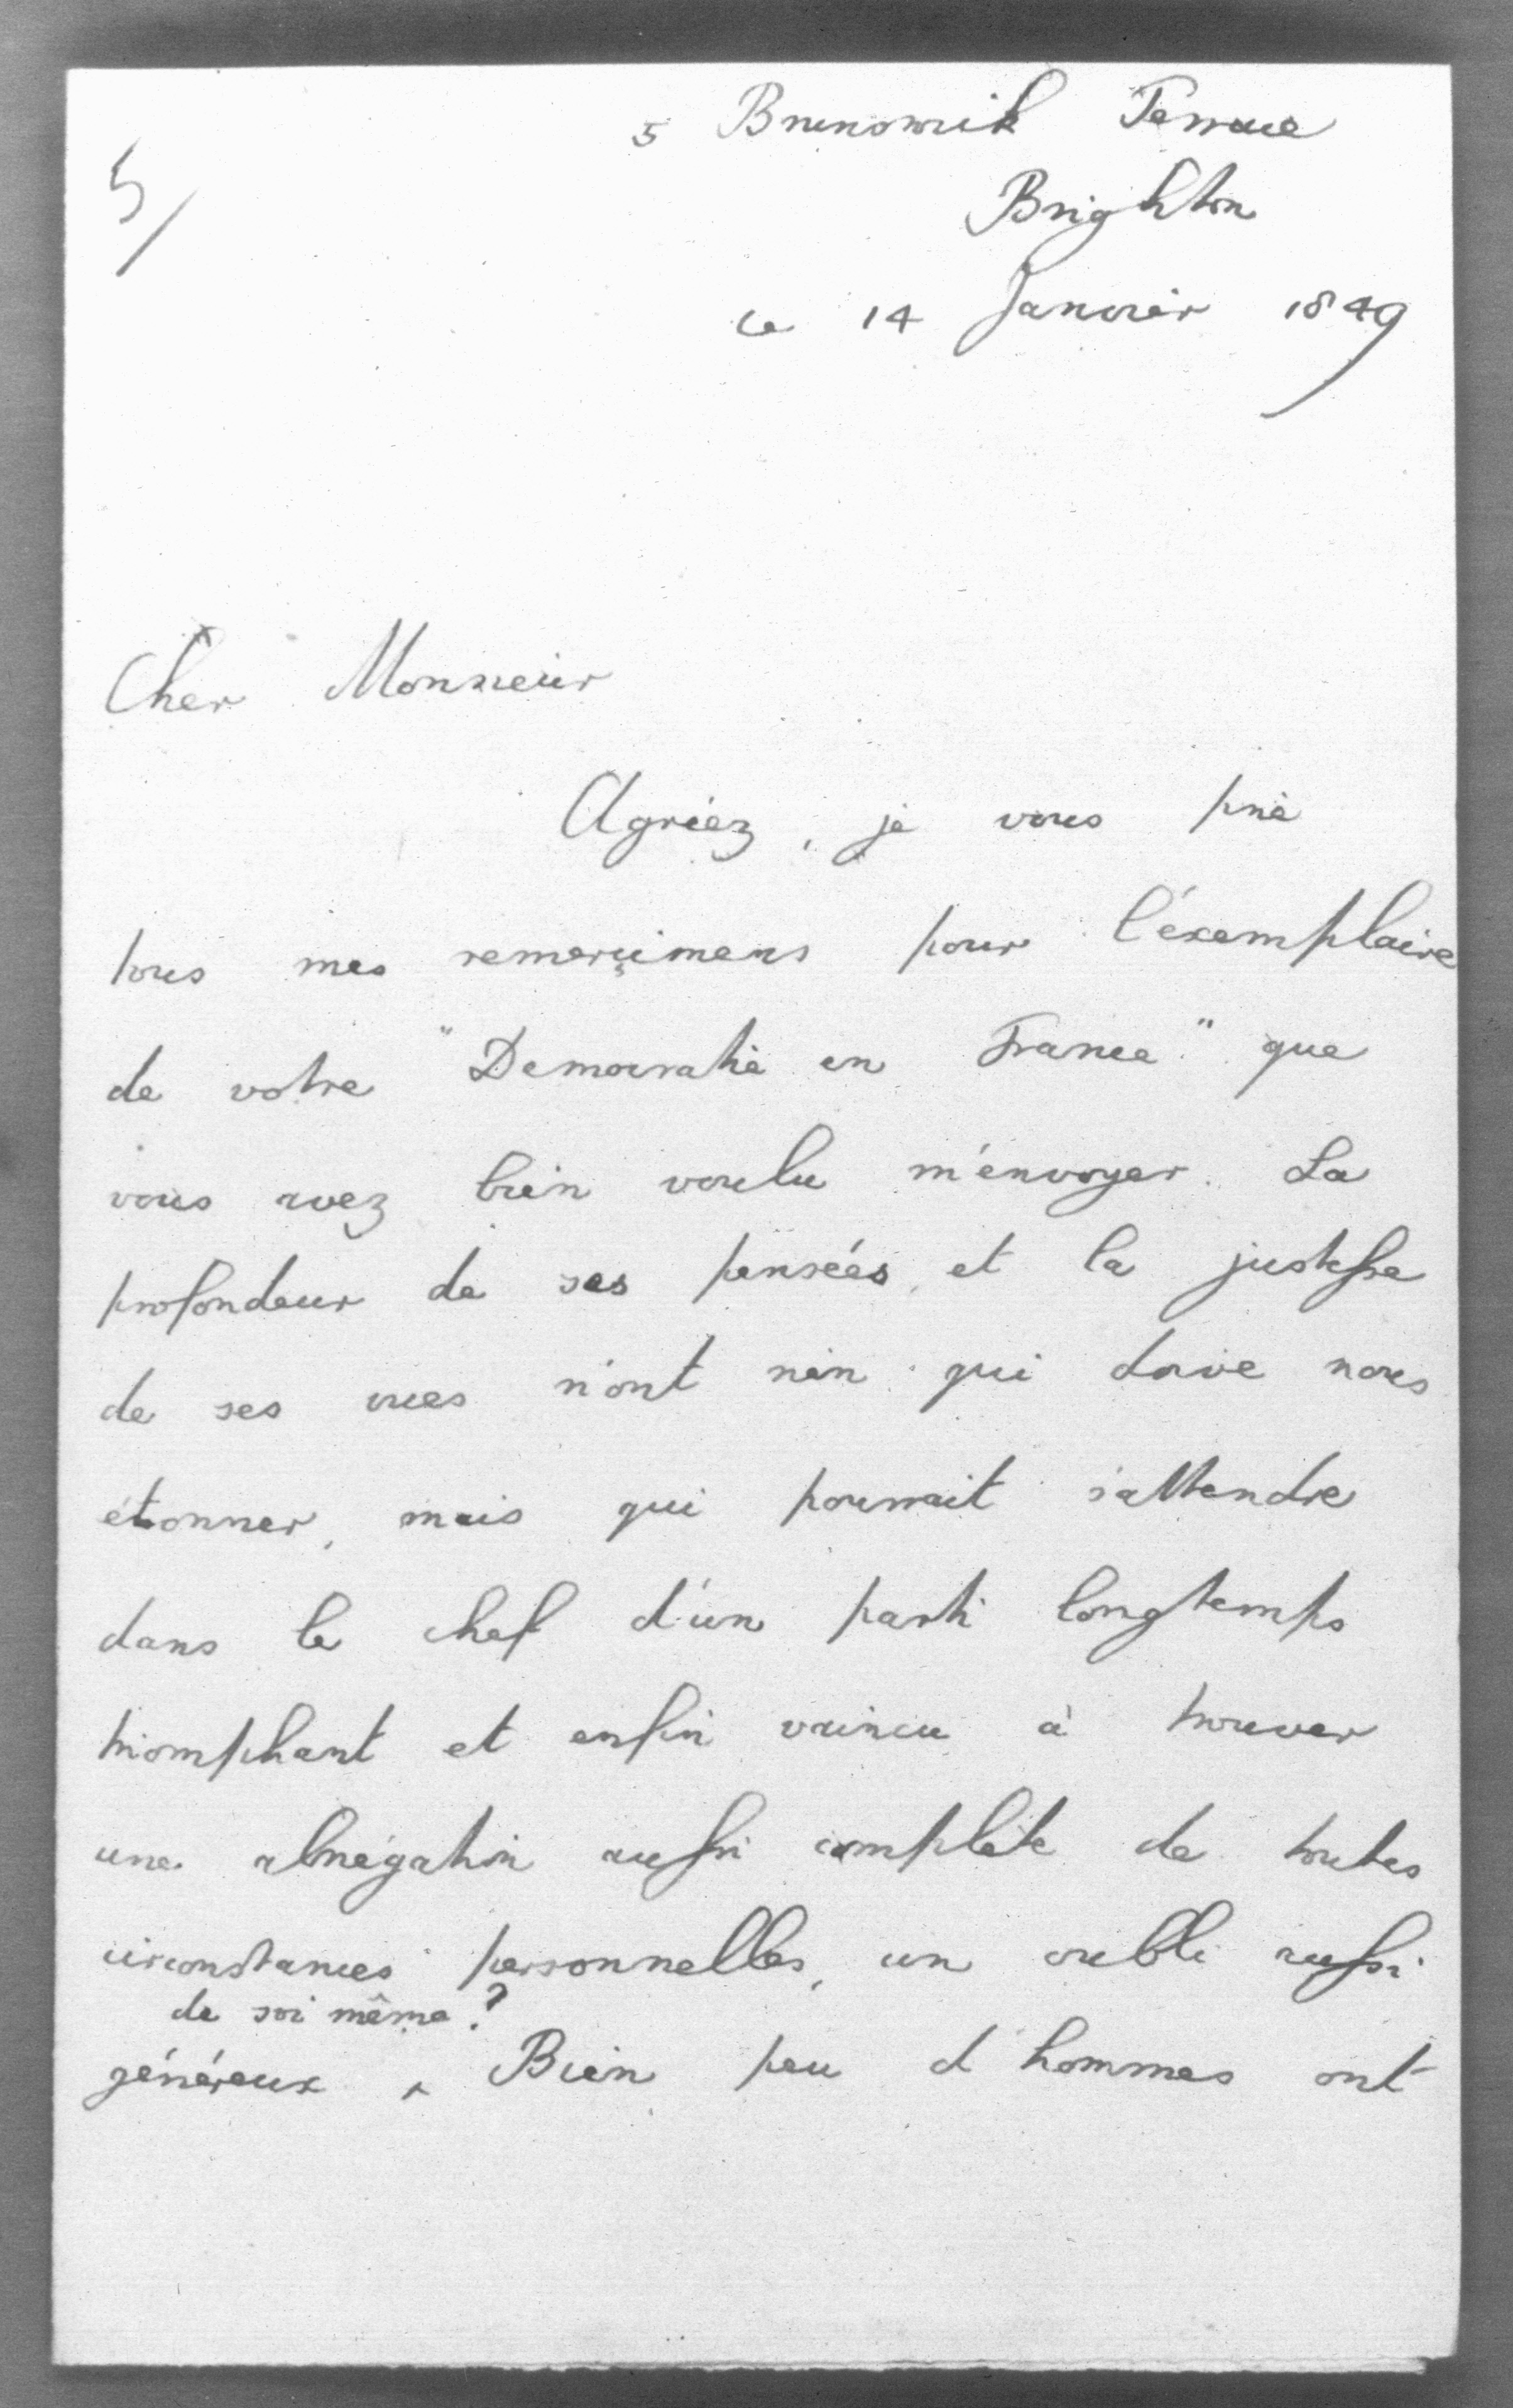 5 Brunswick Terrace
5/
Brighton
ce 14 Janvier 1849
Cher Monsieur
Agriéz, je vous prie
tous mes remerçimens pour l'éxemplaire
de votre "Democratie en France" que
vous avez bien voulu m'envoyer. La
profondeur de ses pensées, et la justesse
de ses vues n'ont rien qui doive nous
étonner, mais qui pourrait s'attendre
dans le chef d'un parti longtemps
triomphant et enfin vaincu à trouver
une abnégation aussi complète de toutes
circonstances personnelles, un oubli aussi
de soi même ?
généreux Bien peu d'hommes ont